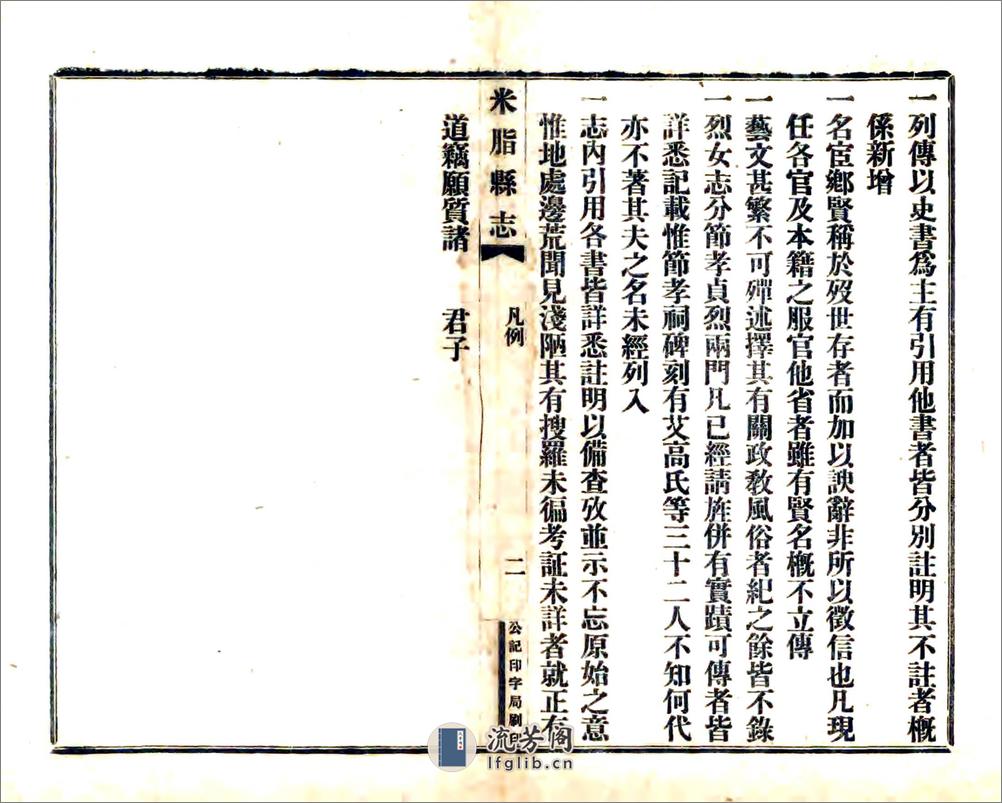 一列傳以史書爲主有引用他書者皆分別註明其不註者概
係新增
一名宦鄉賢稱於歿世存者而加以諛辭非所以徵信也凡現
任各官及本籍之服官他省者雖有賢名概不立傳
一藝文甚繁不可殫述擇其有關政敎風俗者紀之餘皆不錄
一烈女志分節孝貞烈兩門凡已經請旌併有實蹟可傳者皆
詳悉記載惟節孝祠碑刻有艾高氏等三十二人不知何代
亦不著其夫之名未經列入
一志內引用各書皆詳悉註明以備查攷並示不忘原始之意
惟地處邊荒聞見淺陋其有搜羅未徧考証未詳者就正有
米脂縣志
凡例
二
公記印字局刷印
道竊願質諸 君子
流芳阁
lfglib.cn